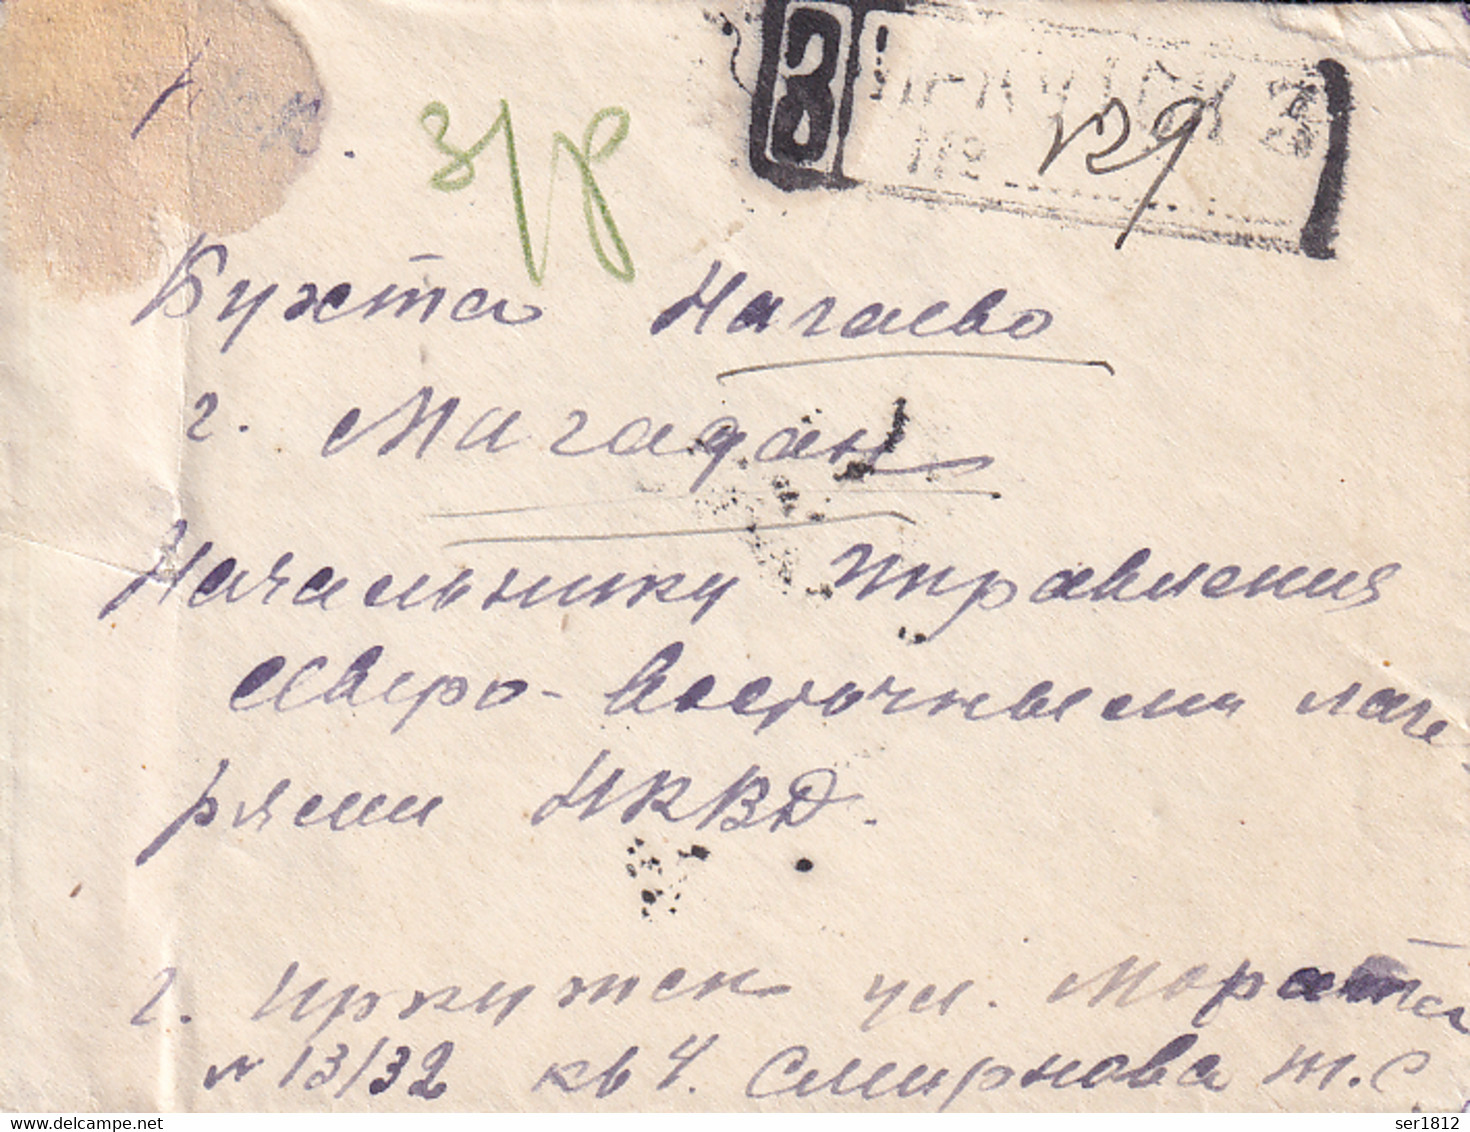 З ИРКУТСК 3
№ 129
з/р
Бухта Нагаево
г. Магадан
Начальнику управления
северо-восточными лаге
рями НКВД.
г. Иркутск ул. Марата
№ 13/32 кв 4. Смирнова т. С
ser1812